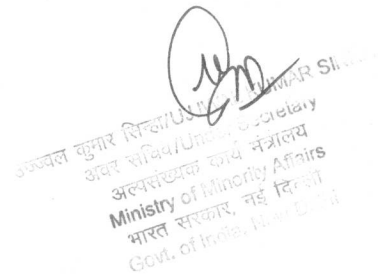 उज्ज्वल कुमार सिन्हा/UJJWAL KUMAR SI
अवर सचिव/Under Secretary
अल्पसंख्यक कार्य मंत्रालय
Ministry of Minority Affairs
भारत सरकार, नई दिल्ली
Govt. of India, New Delhi